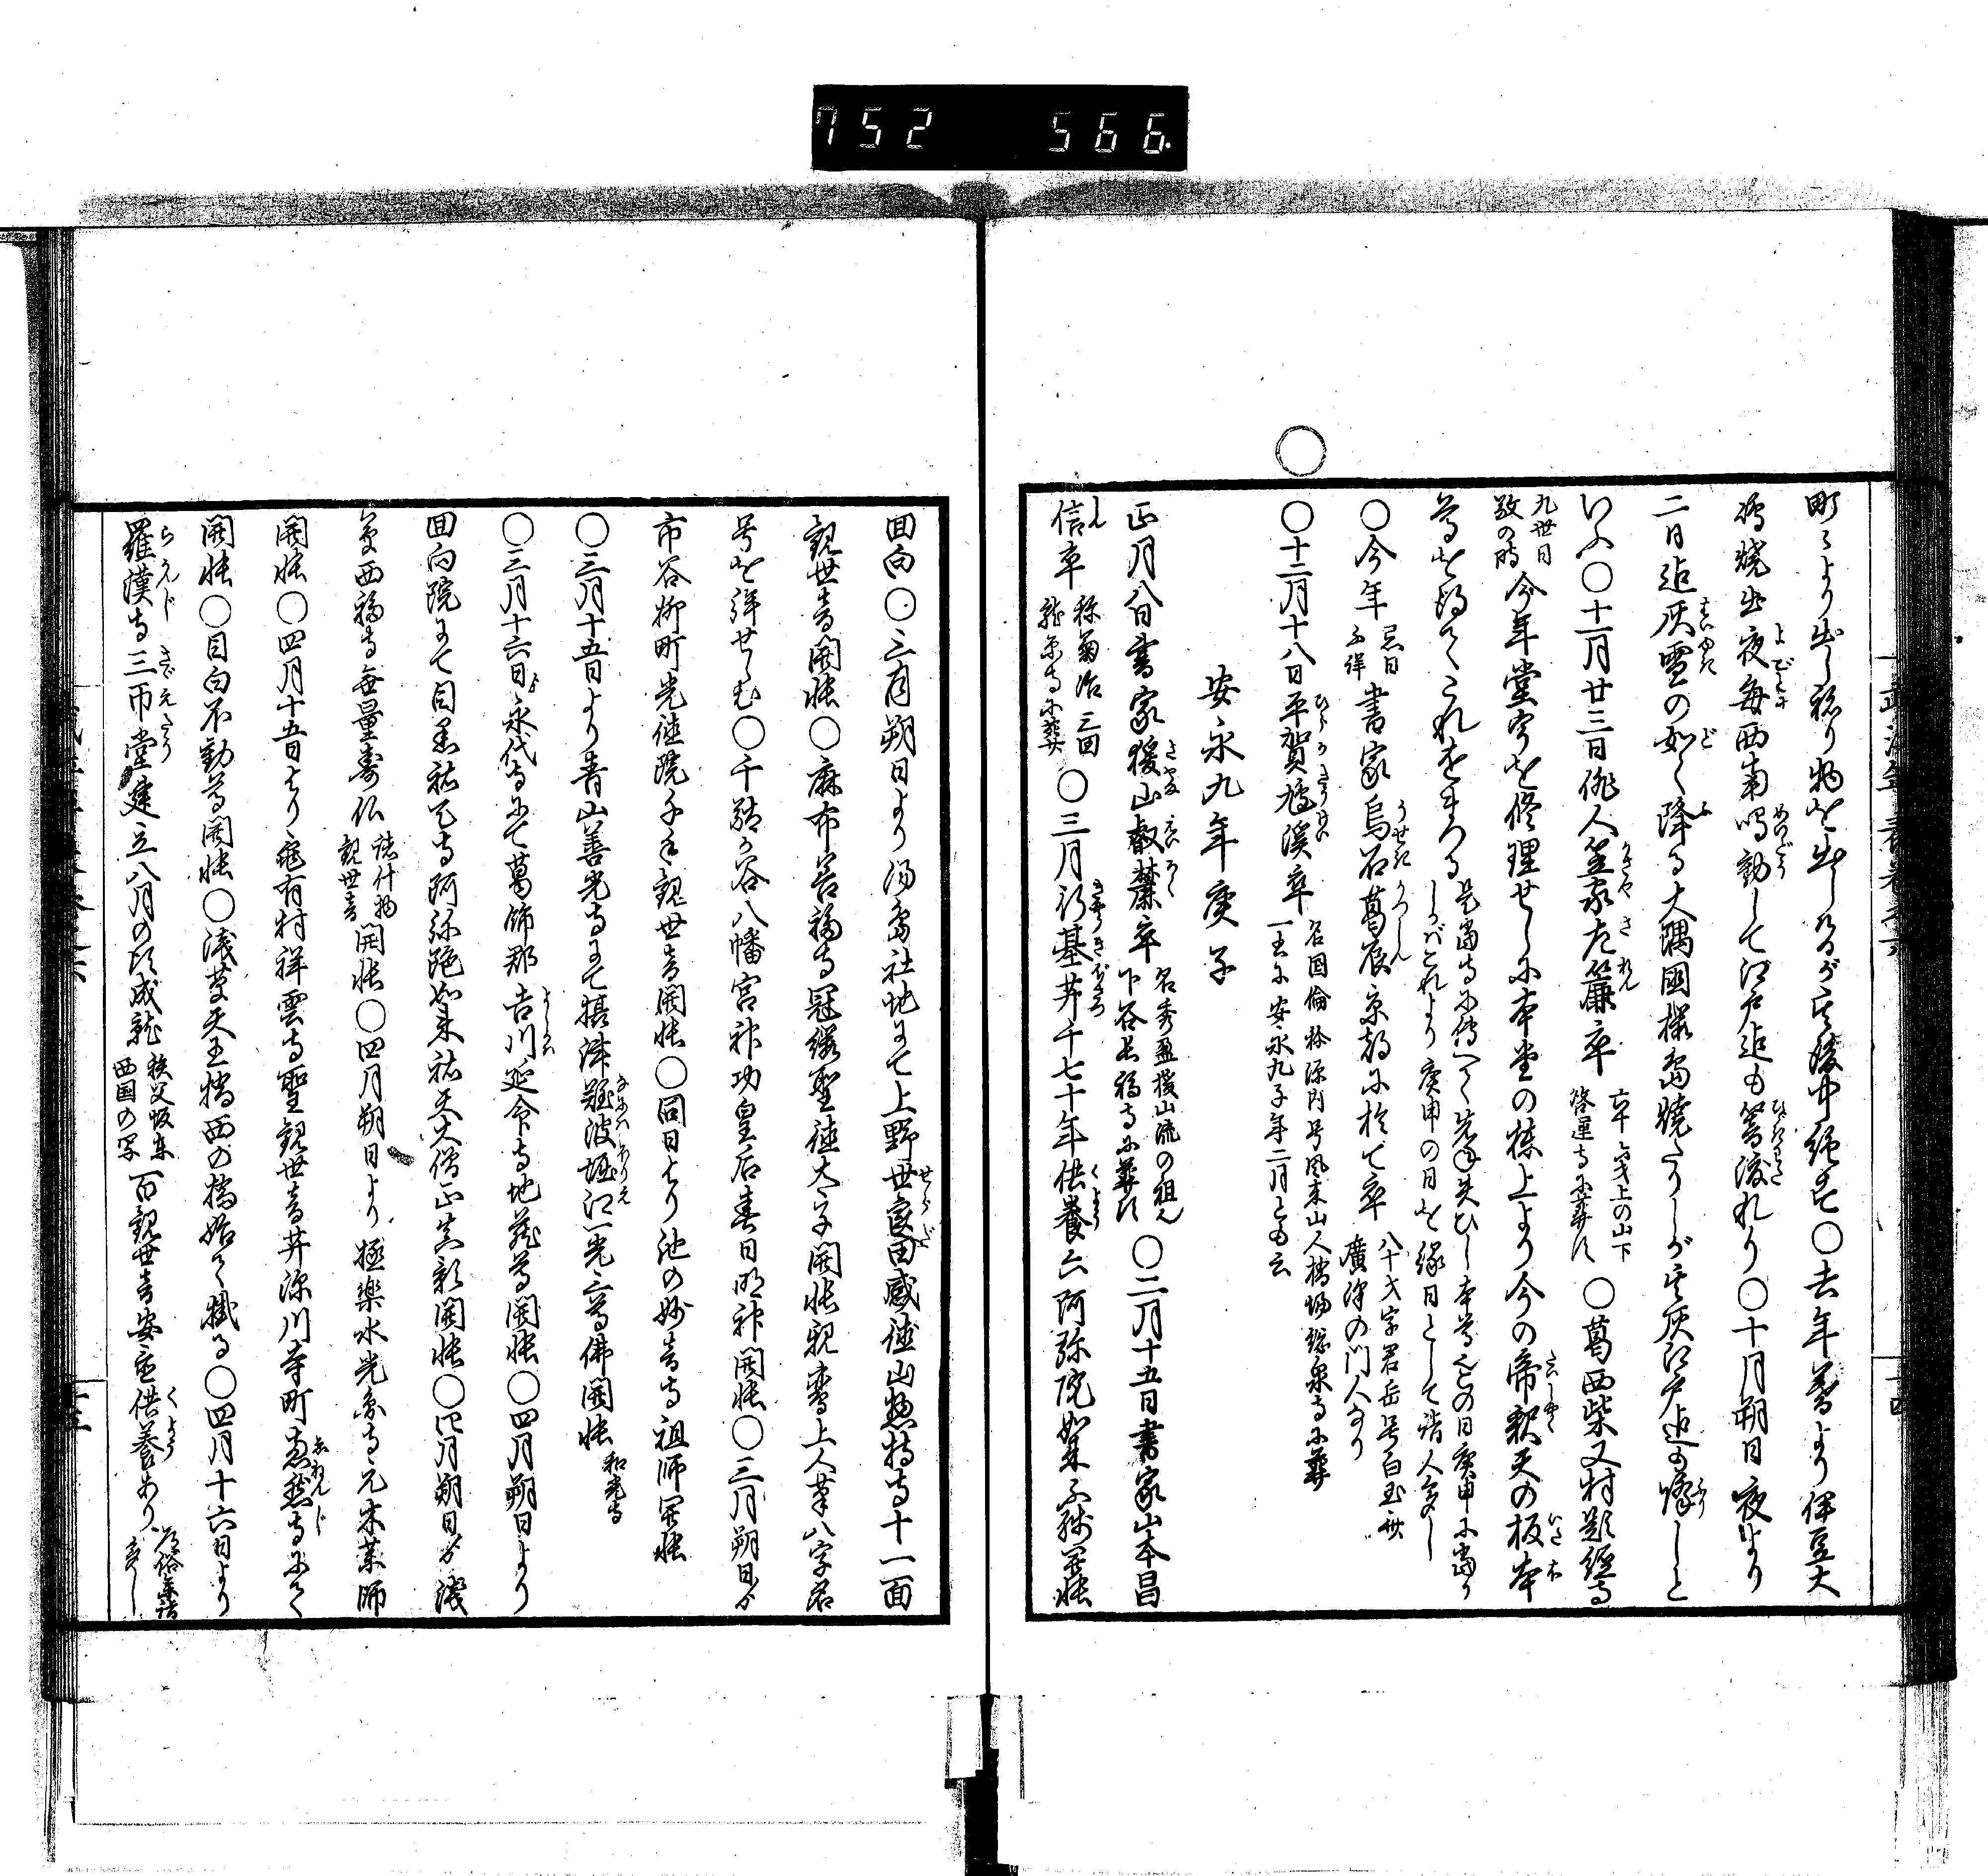 752 566
町々より出し祢り物を出しけるが其後中絶す〇去年暮より伊豆大
嶋焼出夜毎西南鳴動して江戸迄も響渡れり〇十月朔日夜より
二日迄灰雪の如く降る大隅国桜島焼たりしが其灰江戸迄も降しと
いふ〇十一月廿三日俳人笠家左簾卒
六十六才上の山下
啓運寺に葬す
〇葛西柴又村題経寺
九世日
敬の時
今年堂宇を修理せしに本堂の棟上より今の帝釈天の板本
尊を得てこれをまつる
是当寺に伝へて先年失ひし本尊也この日庚申に当り
しがこれより庚申の日を縁日として諸人参詣多し
〇今年
忌日
不詳
書家烏石葛辰京都に於て卒
八十才字君岳号白玉
廣沢の門人なり
〇十二月十八日平賀鳩溪卒
名国倫称源内号風来山人橋場総泉寺に葬
一書に安永九子年二月とも云
安永九年庚子
正月八日書家猨山叡麓卒
名秀盈猨山流の祖也
下谷長福寺に葬す
〇二月十五日書家山本昌
信卒
称菊治三田
龍原寺に葬
〇三月行基井千七十年供養六阿弥陀如来不残開帳
回向〇三月朔日より湯島社地にて上野世良田威徳山惣持寺十一面
観世音開帳〇麻布善福寺冠纓聖徳太子開帳親鸞上人筆八字名
号を拝せしむ〇千駄ヶ谷八幡宮神功皇后春日明神開帳〇三月朔日より
市谷柳町光徳院千手観世音開帳〇同日より池の妙音寺祖師開帳
〇三月十五日より青山善光寺にて摂津難波堀江一光三尊佛開帳
和光寺
〇三月十六日より永代寺にて葛飾郡吉川延命寺地蔵尊開帳〇四月朔日より
回向院にて目黒祐天寺阿弥陀如来祐天大僧正真影開帳〇四月朔日より浅
草西福寺無量寿仏
諸什物
観世音
開帳〇四月朔日より極楽水光圓寺元木薬師
開帳〇四月十五日より亀有村祥雲寺聖観世音并深川寺町恵然寺にて
開帳〇目白不動尊開帳〇浅草天王橋西の橋始て掛る〇四月十六日より
羅漢寺三匝堂建立八月の頃成就
秩父坂東
西国の写
百観世音安置供養あり
道俗参詣
多し